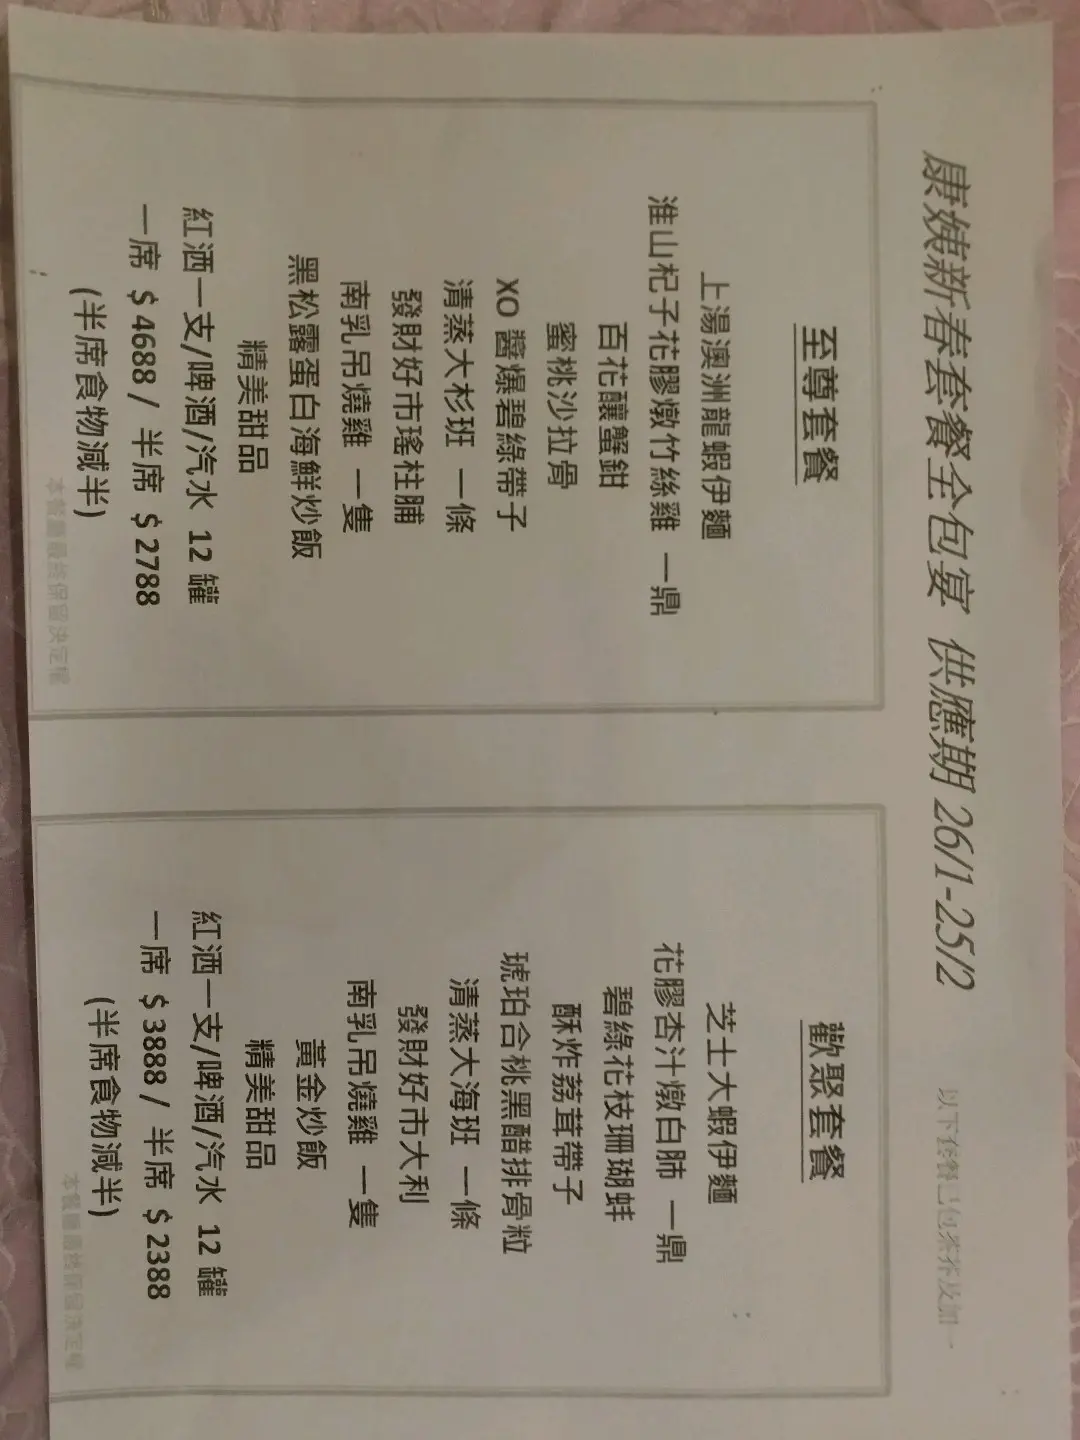 康姨新春套餐全包宴 供應期 26/1-25/2
以下套餐已包茶芥及加一
至尊套餐
上湯澳洲龍蝦伊麵
淮山杞子花膠燉竹絲雞 一鼎
百花釀蟹鉗
蜜桃沙拉骨
XO 醬爆碧綠帶子
清蒸大杉班 一條
發財好市瑤柱脯
南乳吊燒雞 一隻
黑松露蛋白海鮮炒飯
精美甜品
紅酒一支/啤酒/汽水 12 罐
一席 $ 4688 / 半席 $ 2788
(半席食物減半)
本餐廳最終保留決定權
歡聚套餐
芝士大蝦伊麵
花膠杏汁燉白肺 一鼎
碧綠花枝珊瑚蚌
酥炸荔茸帶子
琥珀合桃黑醋排骨粒
清蒸大海班 一條
發財好市大利
南乳吊燒雞 一隻
黃金炒飯
精美甜品
紅酒一支/啤酒/汽水 12 罐
一席 $ 3888 / 半席 $ 2388
(半席食物減半)
本餐廳最終保留決定權